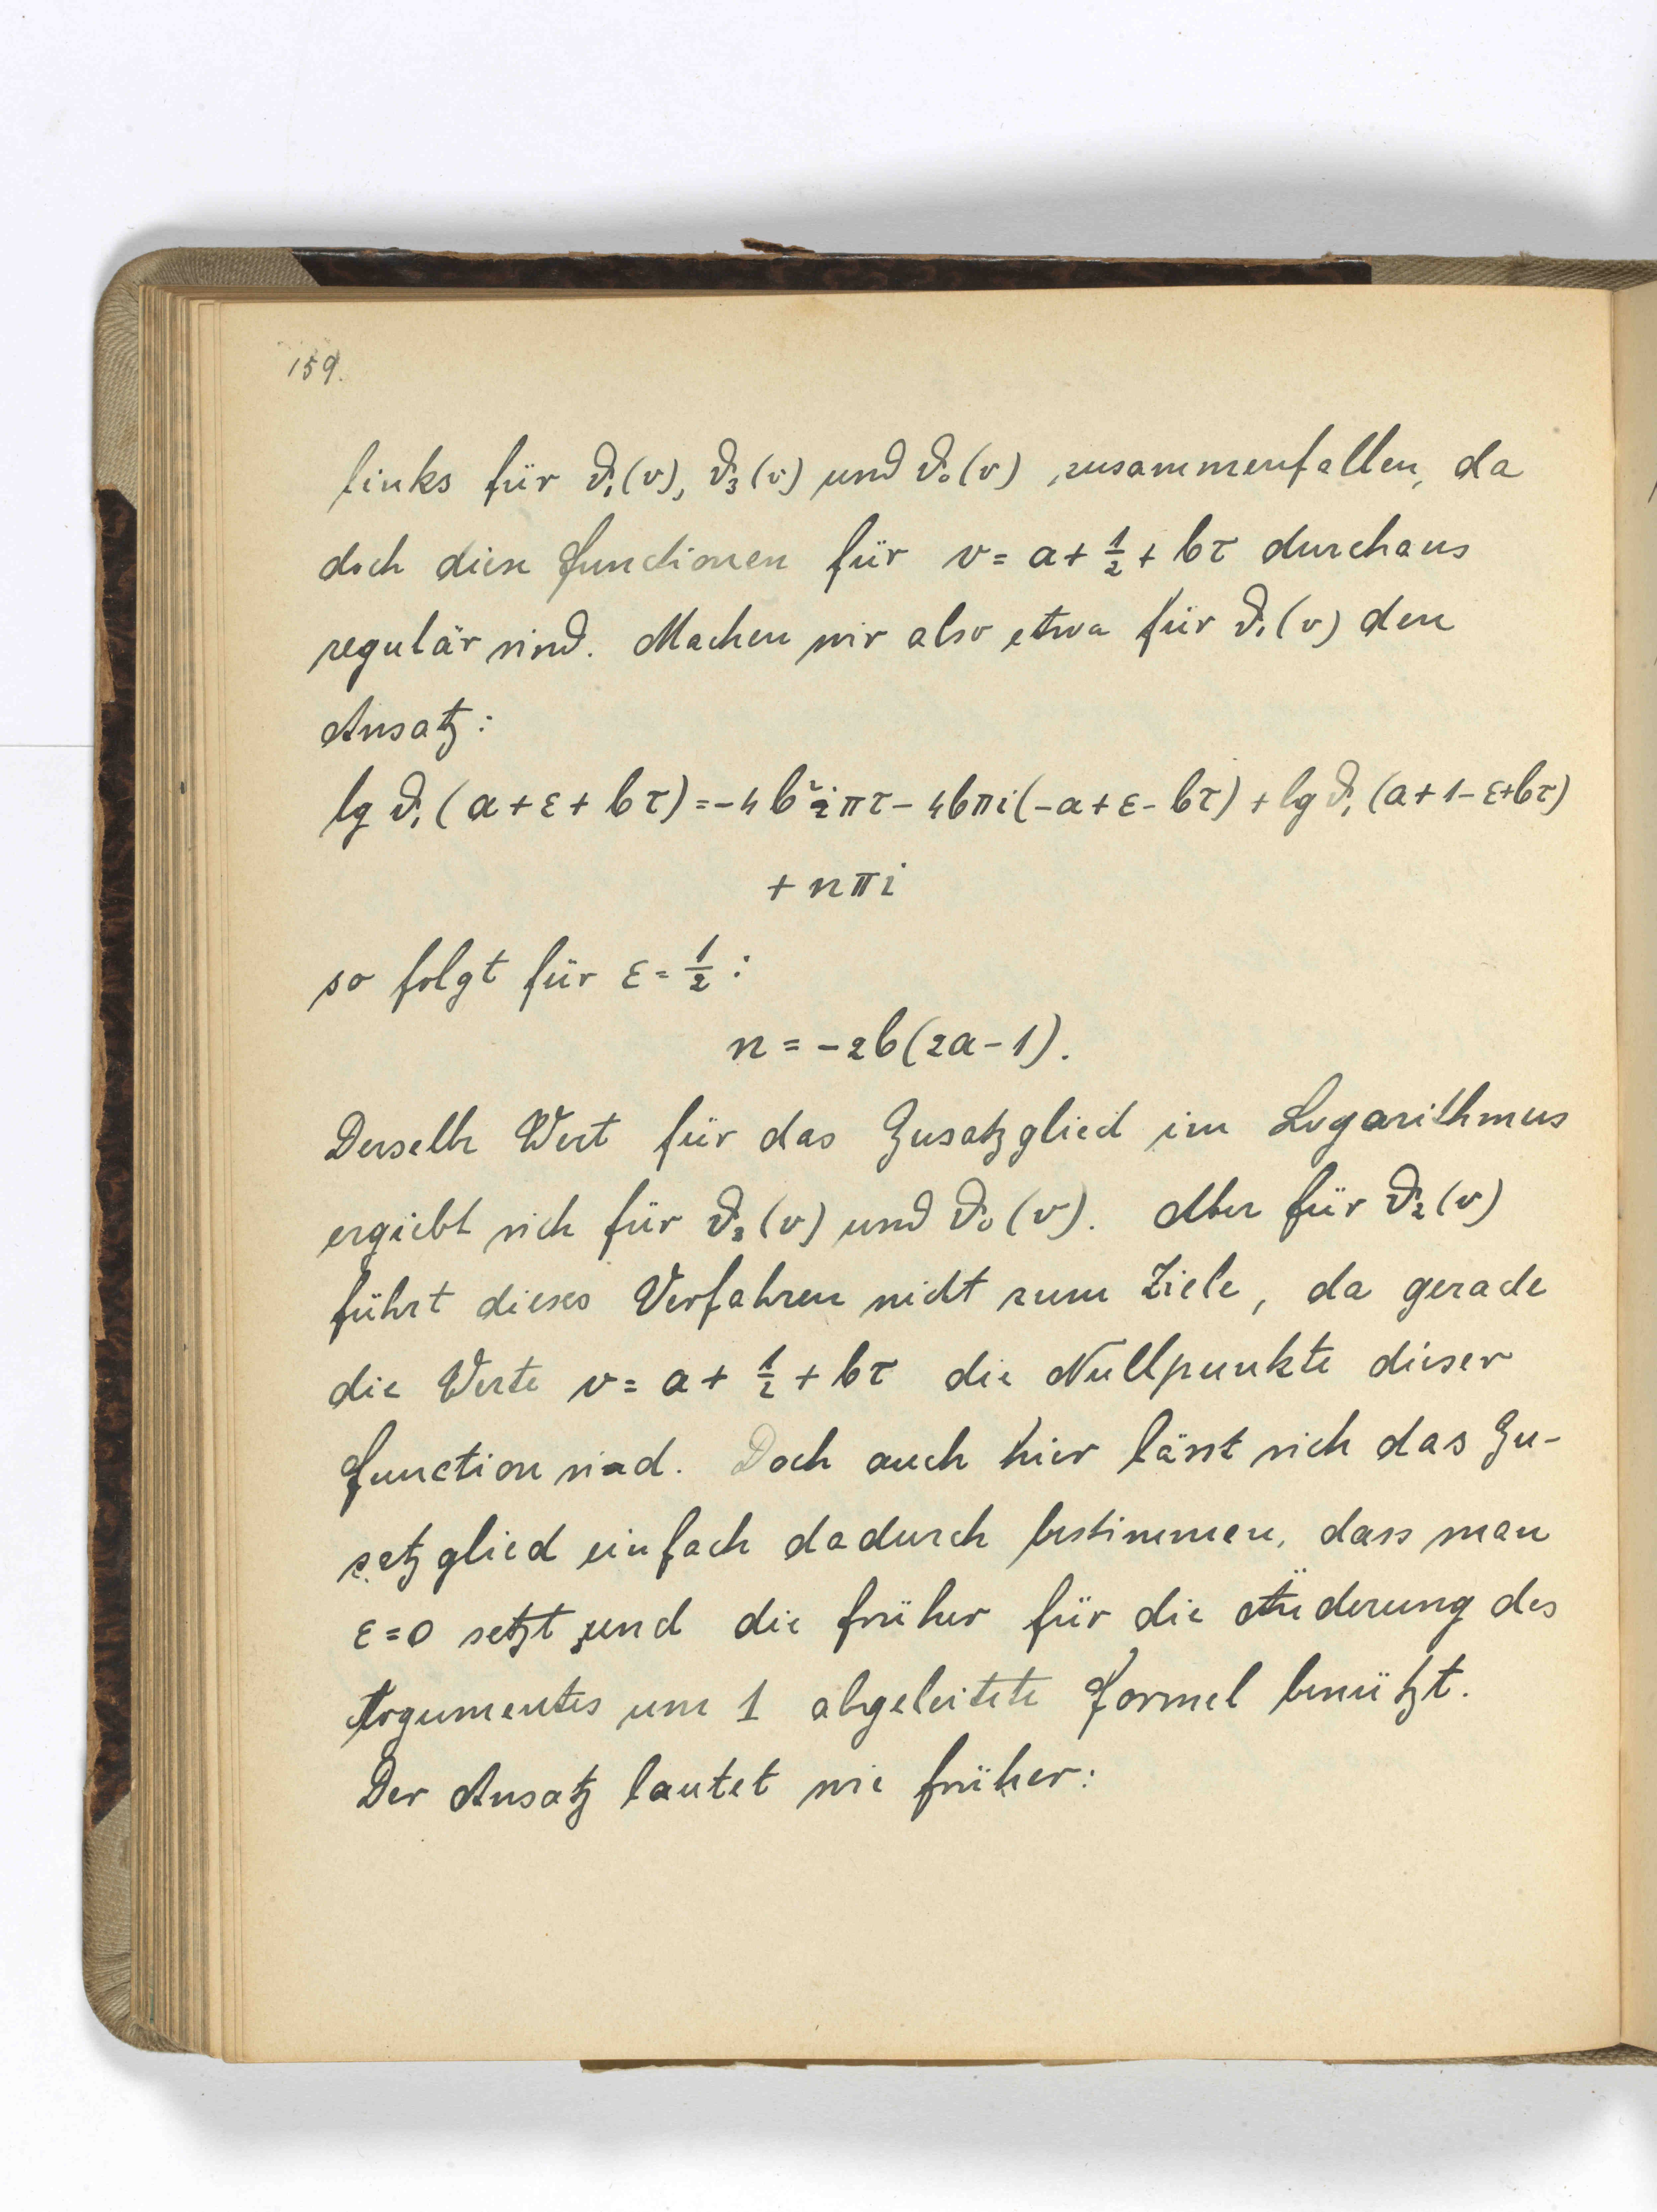 159.
links für ϑ₁(v), ϑ₃(v) und ϑ₀(v) zusammenfallen, da
doch diese Functionen für v = a + 1/2 + bτ durchaus
regulär sind. Machen wir also etwa für ϑ₁(v) den
Ansatz:
lg ϑ₁(a+ε+bτ) = -4b²iπτ - 4bπi(-a+ε-bτ) + lg ϑ₁(a+1-ε+bτ)
+ nπi
so folgt für ε = 1/2:
n = -2b(2a-1).
Derselbe Wert für das Zusatzglied im Logarithmus
ergiebt sich für ϑ₃(v) und ϑ₀(v). Aber für ϑ₂(v)
führt dieses Verfahren nicht zum Ziele, da gerade
die Werte v = a + 1/2 + bτ die Nullpunkte dieser
Function sind. Doch auch hier lässt sich das Zu-
satzglied einfach dadurch bestimmen, dass man
ε=0 setzt und die früher für die Änderung des
Argumentes um 1 abgeleitete Formel benützt.
Der Ansatz lautet wie früher: